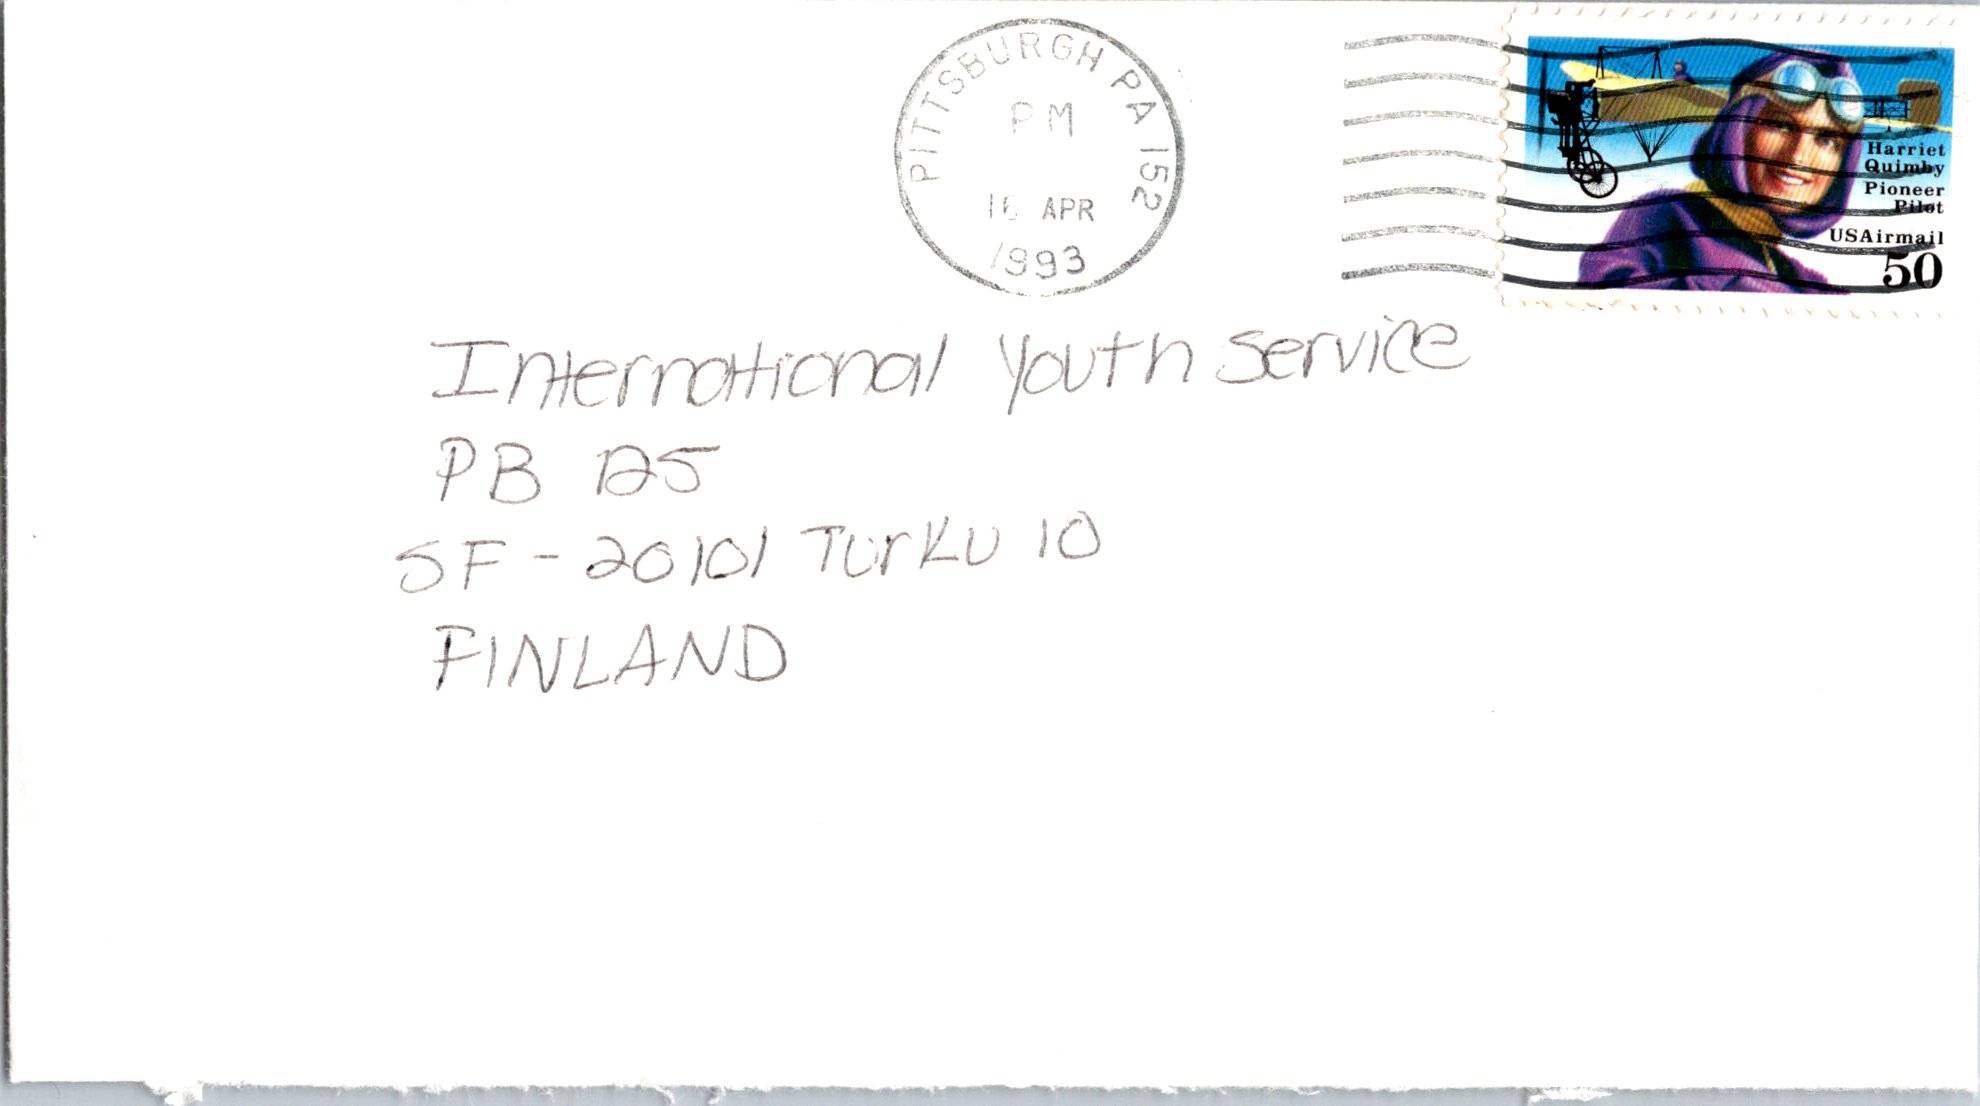 PITTSBURGH PA 152
PM
APR
1993
Harriet
Quimby
Pioneer
Pilot
USAirmail
50
International Youth Service
PB 125
SF-20101 Turku 10
FINLAND